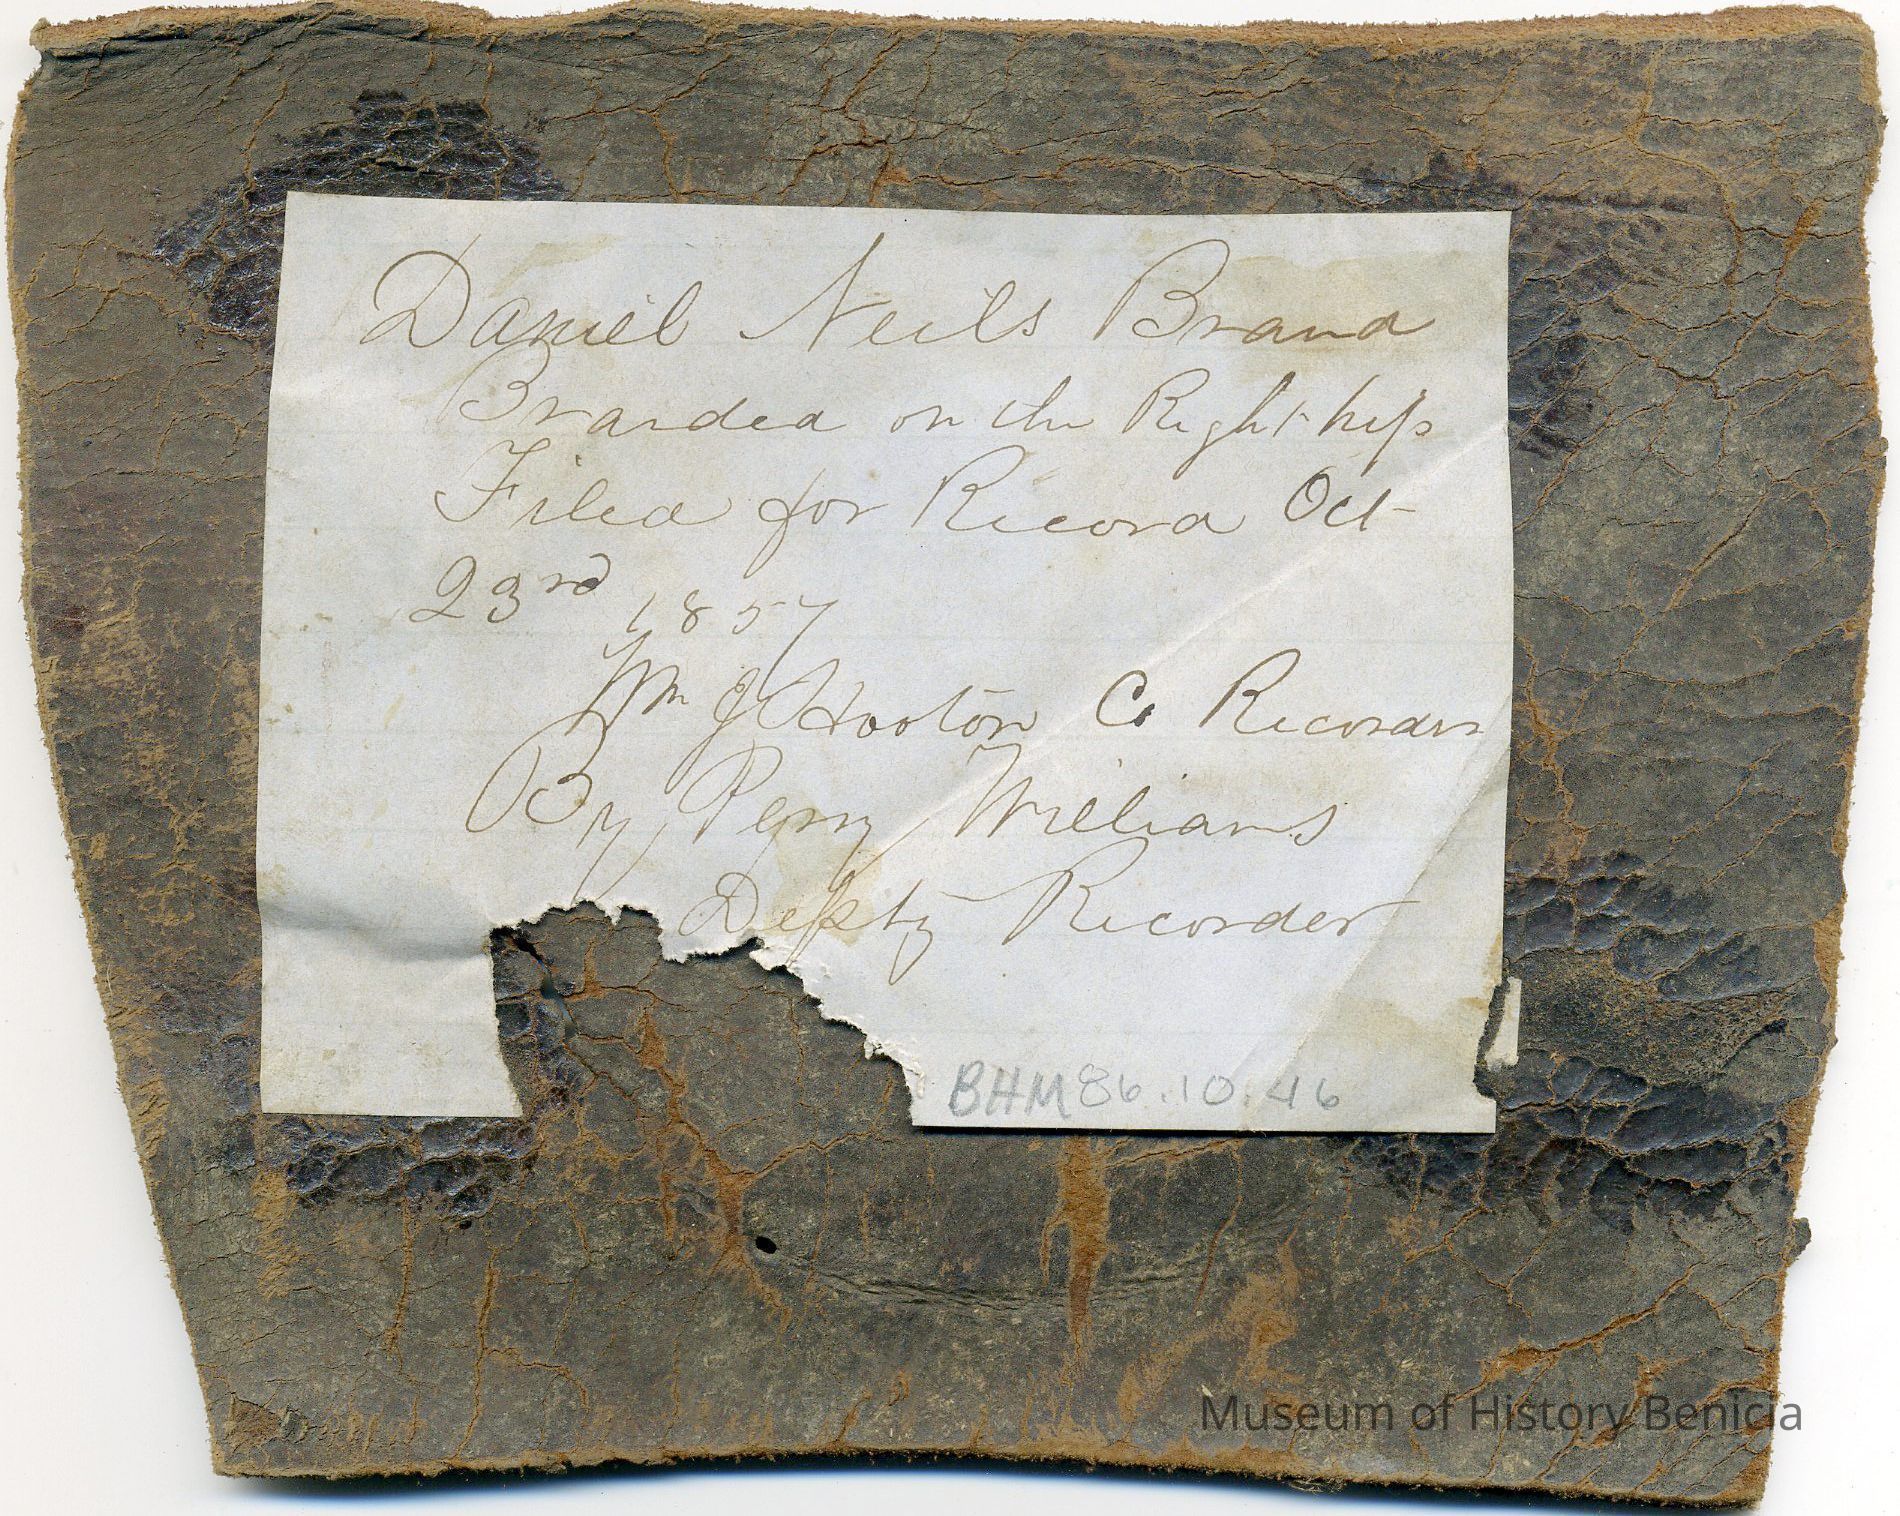 Daniel Neils Brand
Branded on the Right hip
Filed for Record Oct
23rd 1857
Wm J Hooton Co Recorder
By Perry Williams
Depty Recorder
BHM86.10.46
Museum of History Benicia